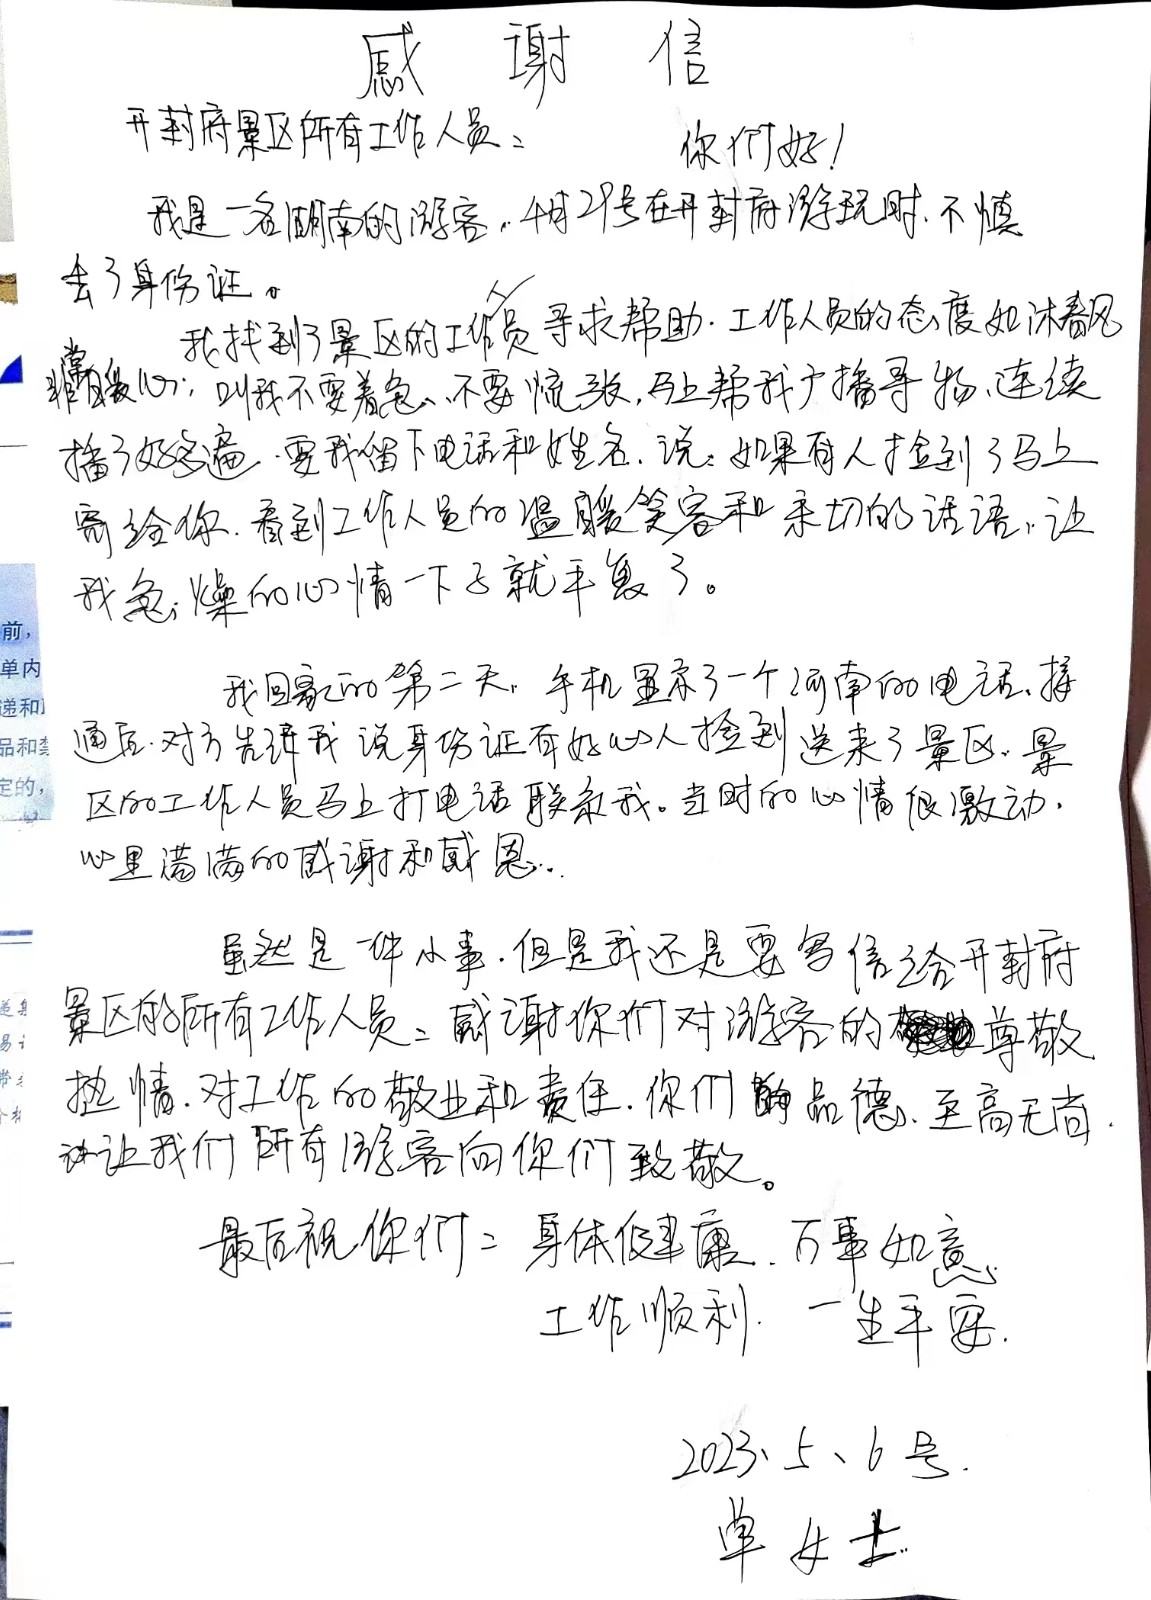 感谢信
开封府景区所有工作人员：
你们好！
我是一名湖南的游客，4月29号在开封府游玩时、不慎
去了身份证。
我找到了景区的工作人员寻求帮助．工作人员的态度如沐春风
非常暖心，叫我不要着急、不要慌张，马上帮我广播寻物、连续
播了好多遍．要我留下电话和姓名、说：如果有人捡到了马上
寄给你．看到工作人员的温暖笑容和亲切的话语，让
我急燥的心情一下子就平复了。
我回家的第二天，手机显示了一个河南的电话、接
通后．对方告诉我说身份证有好心人捡到送来了景区，景
区的工作人员马上打电话联系我。当时的心情很激动，
心里满满的感谢和感恩．
虽然是一件小事．但是我还是要写信给开封府
景区的所有工作人员：感谢你们对游客的尊敬
热情．对工作的敬业和责任．你们的品德、至高无尚．
让我们所有游客向你们致敬。
最后祝你们：身体健康．万事如意
工作顺利．一生平安．
2023、5、6号．
单女士
前，
单内
递和
品和
定的，